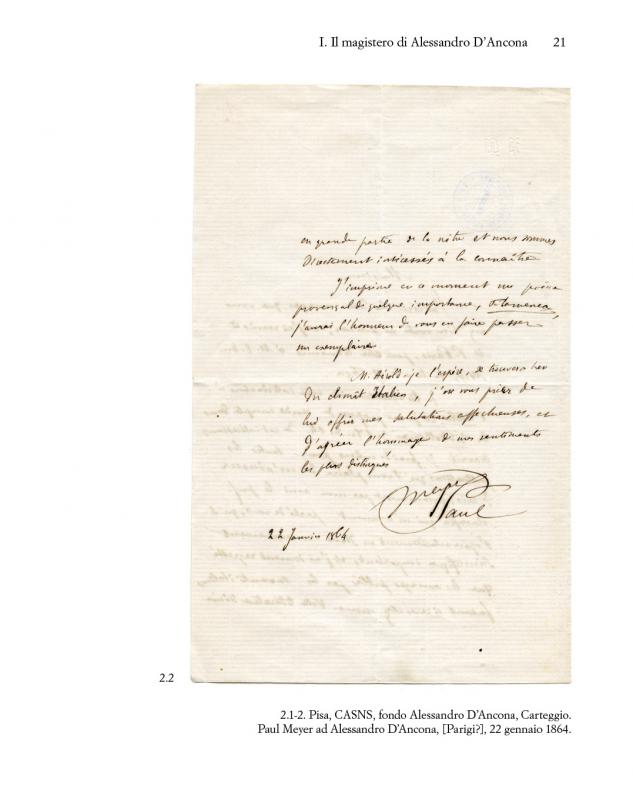 I. Il magistero di Alessandro D'Ancona 21
en grande partie de la nôtre et nous sommes
directement intéressés à la connaître
J'imprime en ce moment un poème
provençal de quelque importance, Flamenca,
j'aurai l'honneur de vous en faire passer
un exemplaire
M. Hérold je l'espère, se trouvera bien
du climat Italien, j'ose vous prier de
lui offrir mes salutations affectueuses, et
d'agréer l'hommage de mes sentiments
les plus distingués
Meyer
Paul
22 Janvier 1864
2.2
2.1-2. Pisa, CASNS, fondo Alessandro D'Ancona, Carteggio.
Paul Meyer ad Alessandro D'Ancona, [Parigi?], 22 gennaio 1864.